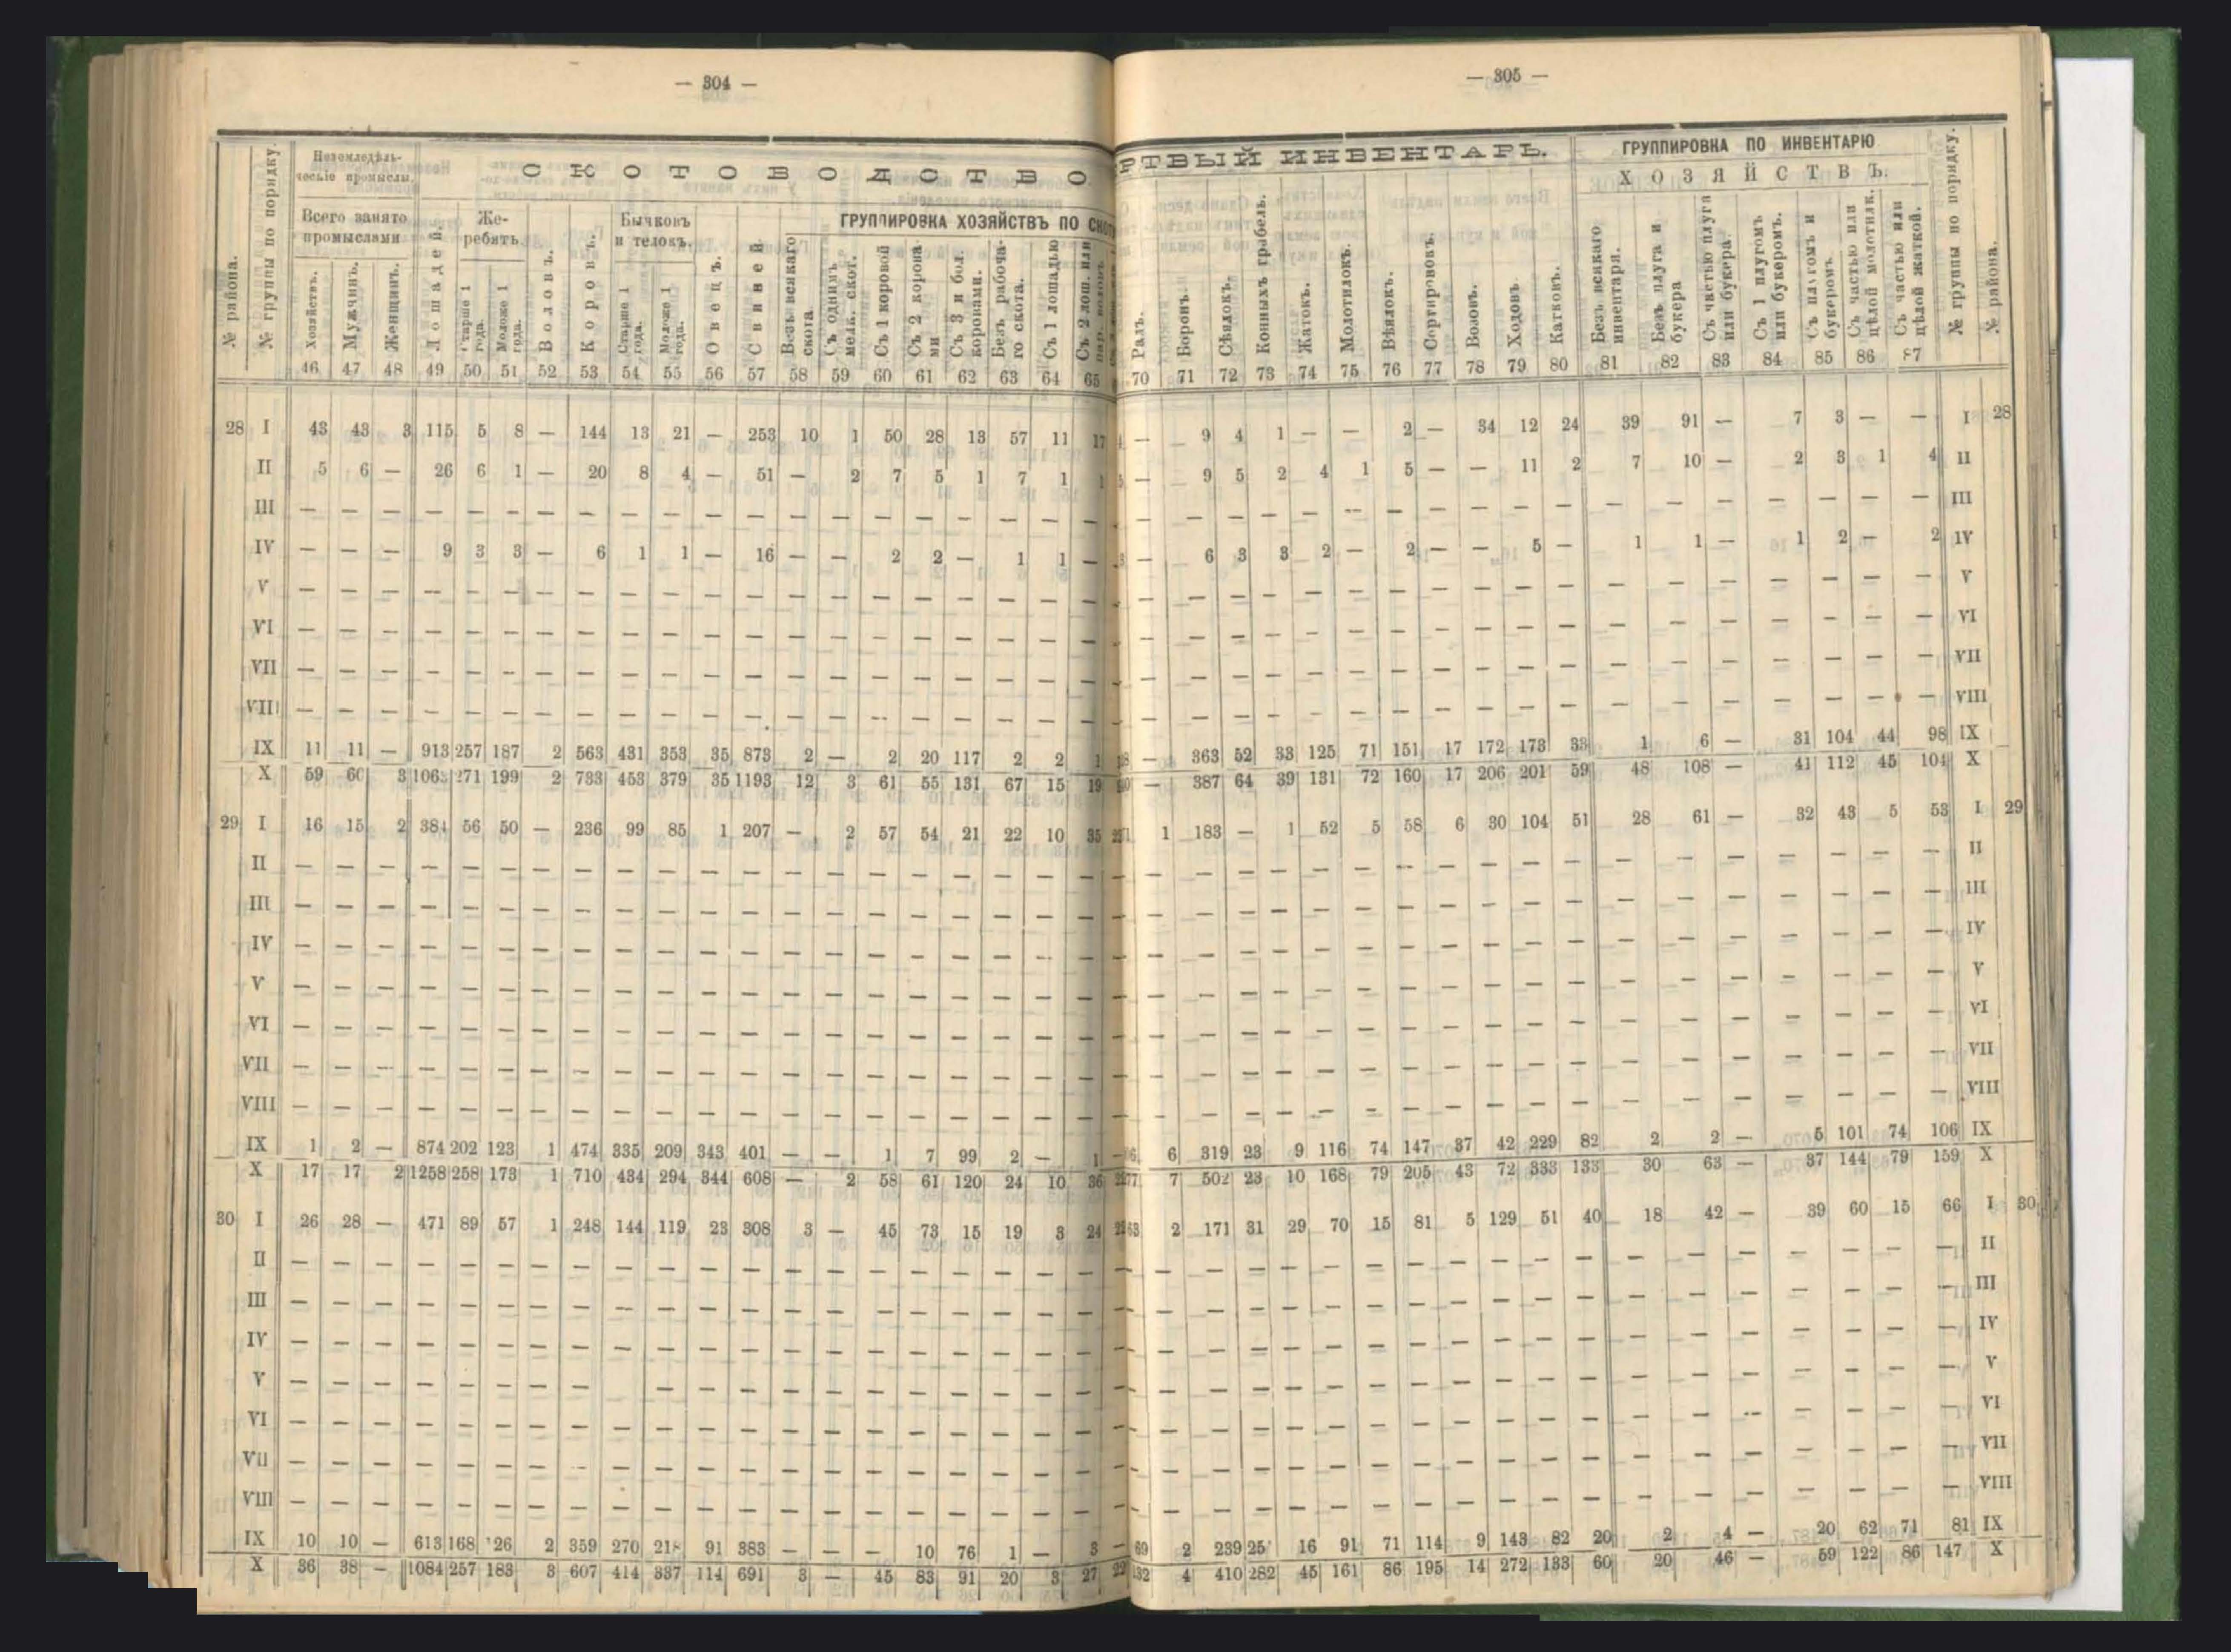 — 304 —
№ района.
№ группы по порядку.
Неземледѣльческіе промыслы.
Всего занято промыслами
Хозяйствъ.
Мужчинъ.
Женщинъ.
СКОТОВОДСТВО
Лошадей.
Жеребятъ.
Старше 1 года.
Моложе 1 года.
Воловъ.
Коровъ.
Бычковъ и телокъ.
Старше 1 года.
Моложе 1 года.
Овецъ.
Свиней
ГРУППИРОВКА ХОЗЯЙСТВЪ ПО
Безъ всякаго скота.
Съ однимъ мелк. скот.
Съ 1 коровой
Съ 2 коровами
Съ 3 и бол. коровами.
Безъ рабочаго скота.
Съ 1 лошадью
Съ 2 лош. или
46 47 48 49 50 51 52 53 54 55 56 57 58 59 60 61 62 63 64 65
28 I 43 43 3 115 5 8 — 144 13 21 — 253 10 1 50 28 13 57 11 17
II 5 6 — 26 6 1 — 20 8 4 — 51 — 2 7 5 1 7 1 1
III — — — — — — — — — — — — — — — — — — — —
IV — — — 9 3 3 — 6 1 1 — 16 — — 2 2 — 1 1 —
V — — — — — — — — — — — — — — — — — — — —
VI — — — — — — — — — — — — — — — — — — — —
VII — — — — — — — — — — — — — — — — — — — —
VIII — — — — — — — — — — — — — — — — — — — —
IX 11 11 — 913 257 187 2 563 431 353 35 873 2 — 2 20 117 2 2 1
X 59 60 3 1063 271 199 2 733 453 379 35 1193 12 3 61 55 131 67 15 19
29 I 16 15 2 384 56 50 — 236 99 85 1 207 — 2 57 54 21 22 10 35
II — — — — — — — — — — — — — — — — — — — —
III — — — — — — — — — — — — — — — — — — — —
IV — — — — — — — — — — — — — — — — — — — —
V — — — — — — — — — — — — — — — — — — — —
VI — — — — — — — — — — — — — — — — — — — —
VII — — — — — — — — — — — — — — — — — — — —
VIII — — — — — — — — — — — — — — — — — — — —
IX 1 2 — 874 202 123 1 474 335 209 343 401 — — 1 7 99 2 — 1
X 17 17 2 1258 258 173 1 710 434 294 344 608 — 2 58 61 120 24 10 36
30 I 26 28 — 471 89 57 1 248 144 119 23 308 3 — 45 73 15 19 3 24
II — — — — — — — — — — — — — — — — — — — —
III — — — — — — — — — — — — — — — — — — — —
IV — — — — — — — — — — — — — — — — — — — —
V — — — — — — — — — — — — — — — — — — — —
VI — — — — — — — — — — — — — — — — — — — —
VII — — — — — — — — — — — — — — — — — — — —
VIII — — — — — — — — — — — — — — — — — — — —
IX 10 10 — 613 168 126 2 359 270 218 91 383 — — — 10 76 1 — 3
X 36 38 — 1084 257 183 3 607 414 337 114 691 3 — 45 83 91 20 3 27
— 305 —
РТВЫЙ ИНВЕНТАРЬ.
Ралъ.
Боронъ.
Сѣялокъ.
Конныхъ грабель.
Жатокъ.
Молотилокъ.
Вѣялокъ.
Сортировокъ.
Возовъ.
Ходовъ
Катковъ.
ГРУППИРОВКА ПО ИНВЕНТАРЮ
ХОЗЯЙСТВЪ.
Безъ всякаго инвентаря.
Безъ плуга и букера
Съ частью плуга или букера.
Съ 1 плугомъ или букеромъ.
Съ плугомъ и букеромъ.
Съ частью или цѣлой молотилк.
Съ частью или цѣлой жаткой.
№ группы по порядку.
№ района.
70 71 72 73 74 75 76 77 78 79 80 81 82 83 84 85 86 87
— 9 4 1 — — 2 — 34 12 24 39 91 — 7 3 — — I 28
— 9 5 2 4 1 5 — — 11 2 7 10 — 2 3 1 4 II
— — — — — — — — — — — — — — — — — — III
— 6 3 3 2 — 2 — — 5 — 1 1 — 1 2 — 2 IV
— — — — — — — — — — — — — — — — — — V
— — — — — — — — — — — — — — — — — — VI
— — — — — — — — — — — — — — — — — — VII
— — — — — — — — — — — — — — — — — — VIII
— 363 52 33 125 71 151 17 172 173 33 1 6 — 31 104 44 98 IX
— 387 64 39 131 72 160 17 206 201 59 48 108 — 41 112 45 104 X
1 183 — 1 52 5 58 6 30 104 51 28 61 — 32 43 5 53 I 29
— — — — — — — — — — — — — — — — — — II
— — — — — — — — — — — — — — — — — — III
— — — — — — — — — — — — — — — — — — IV
— — — — — — — — — — — — — — — — — — V
— — — — — — — — — — — — — — — — — — VI
— — — — — — — — — — — — — — — — — — VII
— — — — — — — — — — — — — — — — — — VIII
6 319 23 9 116 74 147 37 42 229 82 2 2 — 5 101 74 106 IX
7 502 23 10 168 79 205 43 72 333 133 30 63 — 37 144 79 159 X
2 171 31 29 70 15 81 5 129 51 40 18 42 — 39 60 15 66 I 30
— — — — — — — — — — — — — — — — — — II
— — — — — — — — — — — — — — — — — — III
— — — — — — — — — — — — — — — — — — IV
— — — — — — — — — — — — — — — — — — V
— — — — — — — — — — — — — — — — — — VI
— — — — — — — — — — — — — — — — — — VII
— — — — — — — — — — — — — — — — — — VIII
69 2 239 25 16 91 71 114 9 143 82 20 2 4 — 20 62 71 81 IX
132 4 410 282 45 161 86 195 14 272 133 60 20 46 — 59 122 86 147 X